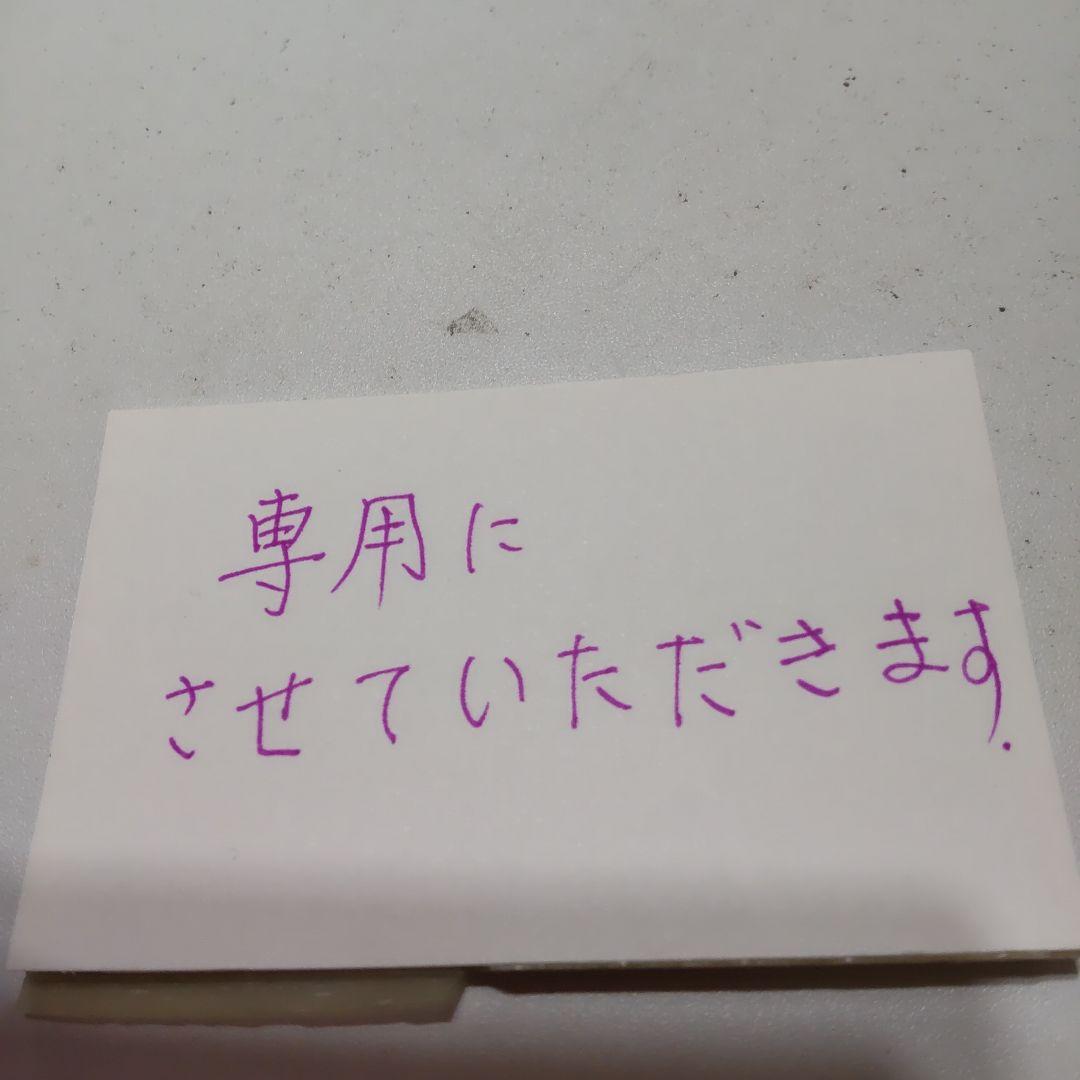 専用に
させていただきます.